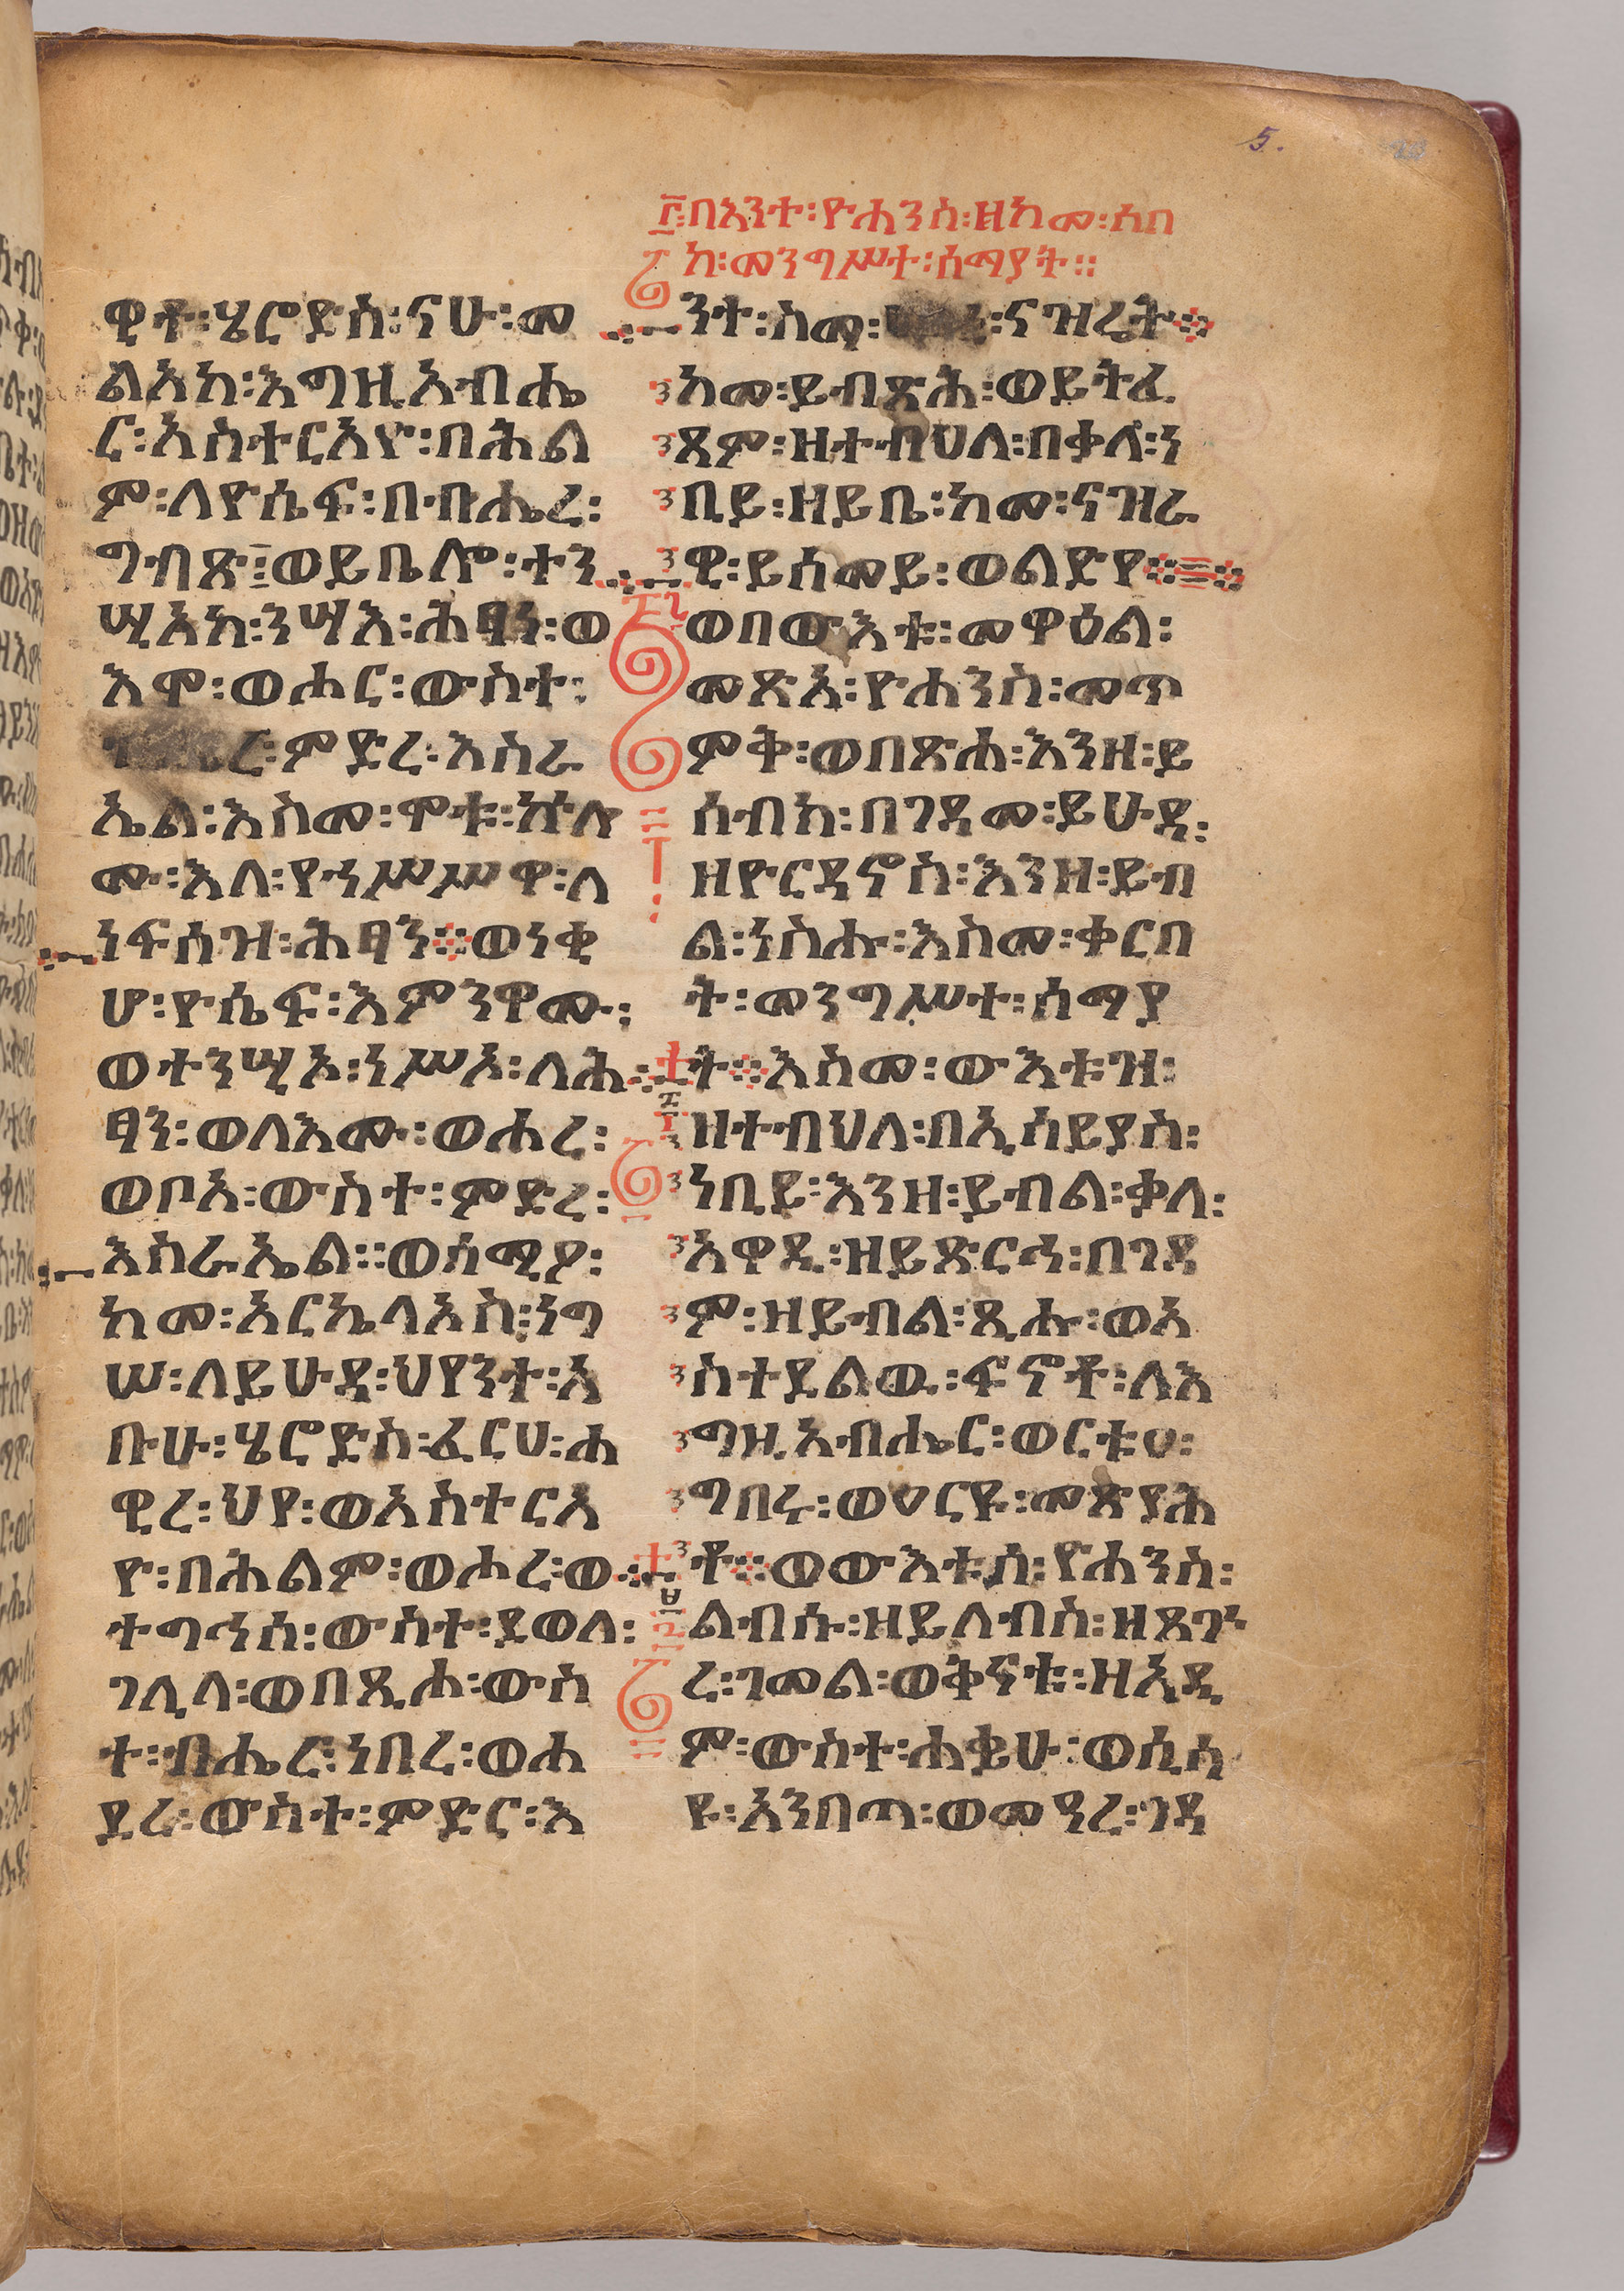 5.
፫፡በእንተ፡ዮሐንስ፡ዘከመ፡ሰበ
ከ፡መንግሥተ፡ሰማያት።
ዊቶ፡ሄሮድስ፡ናሁ፡መ
ልአከ፡እግዚአብሔ
ር፡አስተርአዮ፡በሕል
ም፡ለዮሴፍ፡በብሔረ፡
ግብጽ፡ወይቤሎ፡ተን
ሢአከ፡ንሣእ፡ሕፃነ፡ወ
እሞ፡ወሑር፡ውስተ፡
ምድረ፡እስራ
ኤል፡እስመ፡ሞቱ፡ኵሉ
ሙ፡እለ፡የኀሥሥዋ፡ለ
ነፍሰዝ፡ሕፃን።ወነቂ
ሆ፡ዮሴፍ፡እምንዋሙ፡
ወተንሢኦ፡ነሥኦ፡ለሕ
ፃን፡ወለእሙ፡ወሖረ፡
ወቦአ፡ውስተ፡ምድረ፡
እስራኤል።ወሰሚዖ፡
ከመ፡አርኬላኦስ፡ነግ
ሠ፡ለይሁዳ፡ህየንተ፡አ
ቡሁ፡ሄሮድስ፡ፈርሀ፡ሐ
ዊረ፡ህየ፡ወአስተርአ
ዮ፡በሕልም፡ወሖረ፡ወ
ተግኅሰ፡ውስተ፡ደወለ፡
ገሊላ፡ወበጺሖ፡ውስ
ተ፡ብሔር፡ነበረ፡ወኀ
ደረ፡ውስተ፡ምድር፡እ
ንተ፡ስማ፡ናዝሬት።
ከመ፡ይብጻሕ፡ወይትፈ
ጸም፡ዘተብህለ፡በቃለ፡ነ
ቢይ፡ዘይቤ፡ከመ፡ናዝራ
ዊ፡ይሰመይ፡ወልድየ።
ወበውእቱ፡መዋዕል፡
መጽአ፡ዮሐንስ፡መጥ
ምቅ፡ወበጽሐ፡እንዘ፡ይ
ሰብክ፡በገዳመ፡ይሁዳ፡
ዘዮርዳኖስ፡እንዘ፡ይብ
ል፡ነስሑ፡እስመ፡ቀርበ
ት፡መንግሥተ፡ሰማያ
ት።እስመ፡ውእቱ፡ዝ፡
ዘተብህለ፡በኢሳይያስ፡
ነቢይ፡እንዘ፡ይብል፡ቃለ፡
አዋዲ፡ዘይጸርኅ፡በገዳ
ም፡ዘይብል፡ጺሑ፡ወአ
ስተደልዉ፡ፍኖቶ፡ለእ
ግዚአብሔር፡ወርቱዐ፡
ግበሩ፡ወዐርዩ፡መጽያሕ
ቶ።ወውእቱሰ፡ዮሐንስ፡
ልብሱ፡ዘይለብስ፡ዘጸጕ
ረ፡ገመል፡ወቅናቱ፡ዘአዲ
ም፡ውስተ፡ሐቌሁ፡ወሲሳ
ዩ፡አንበጣ፡ወመዓረ፡ገዳ